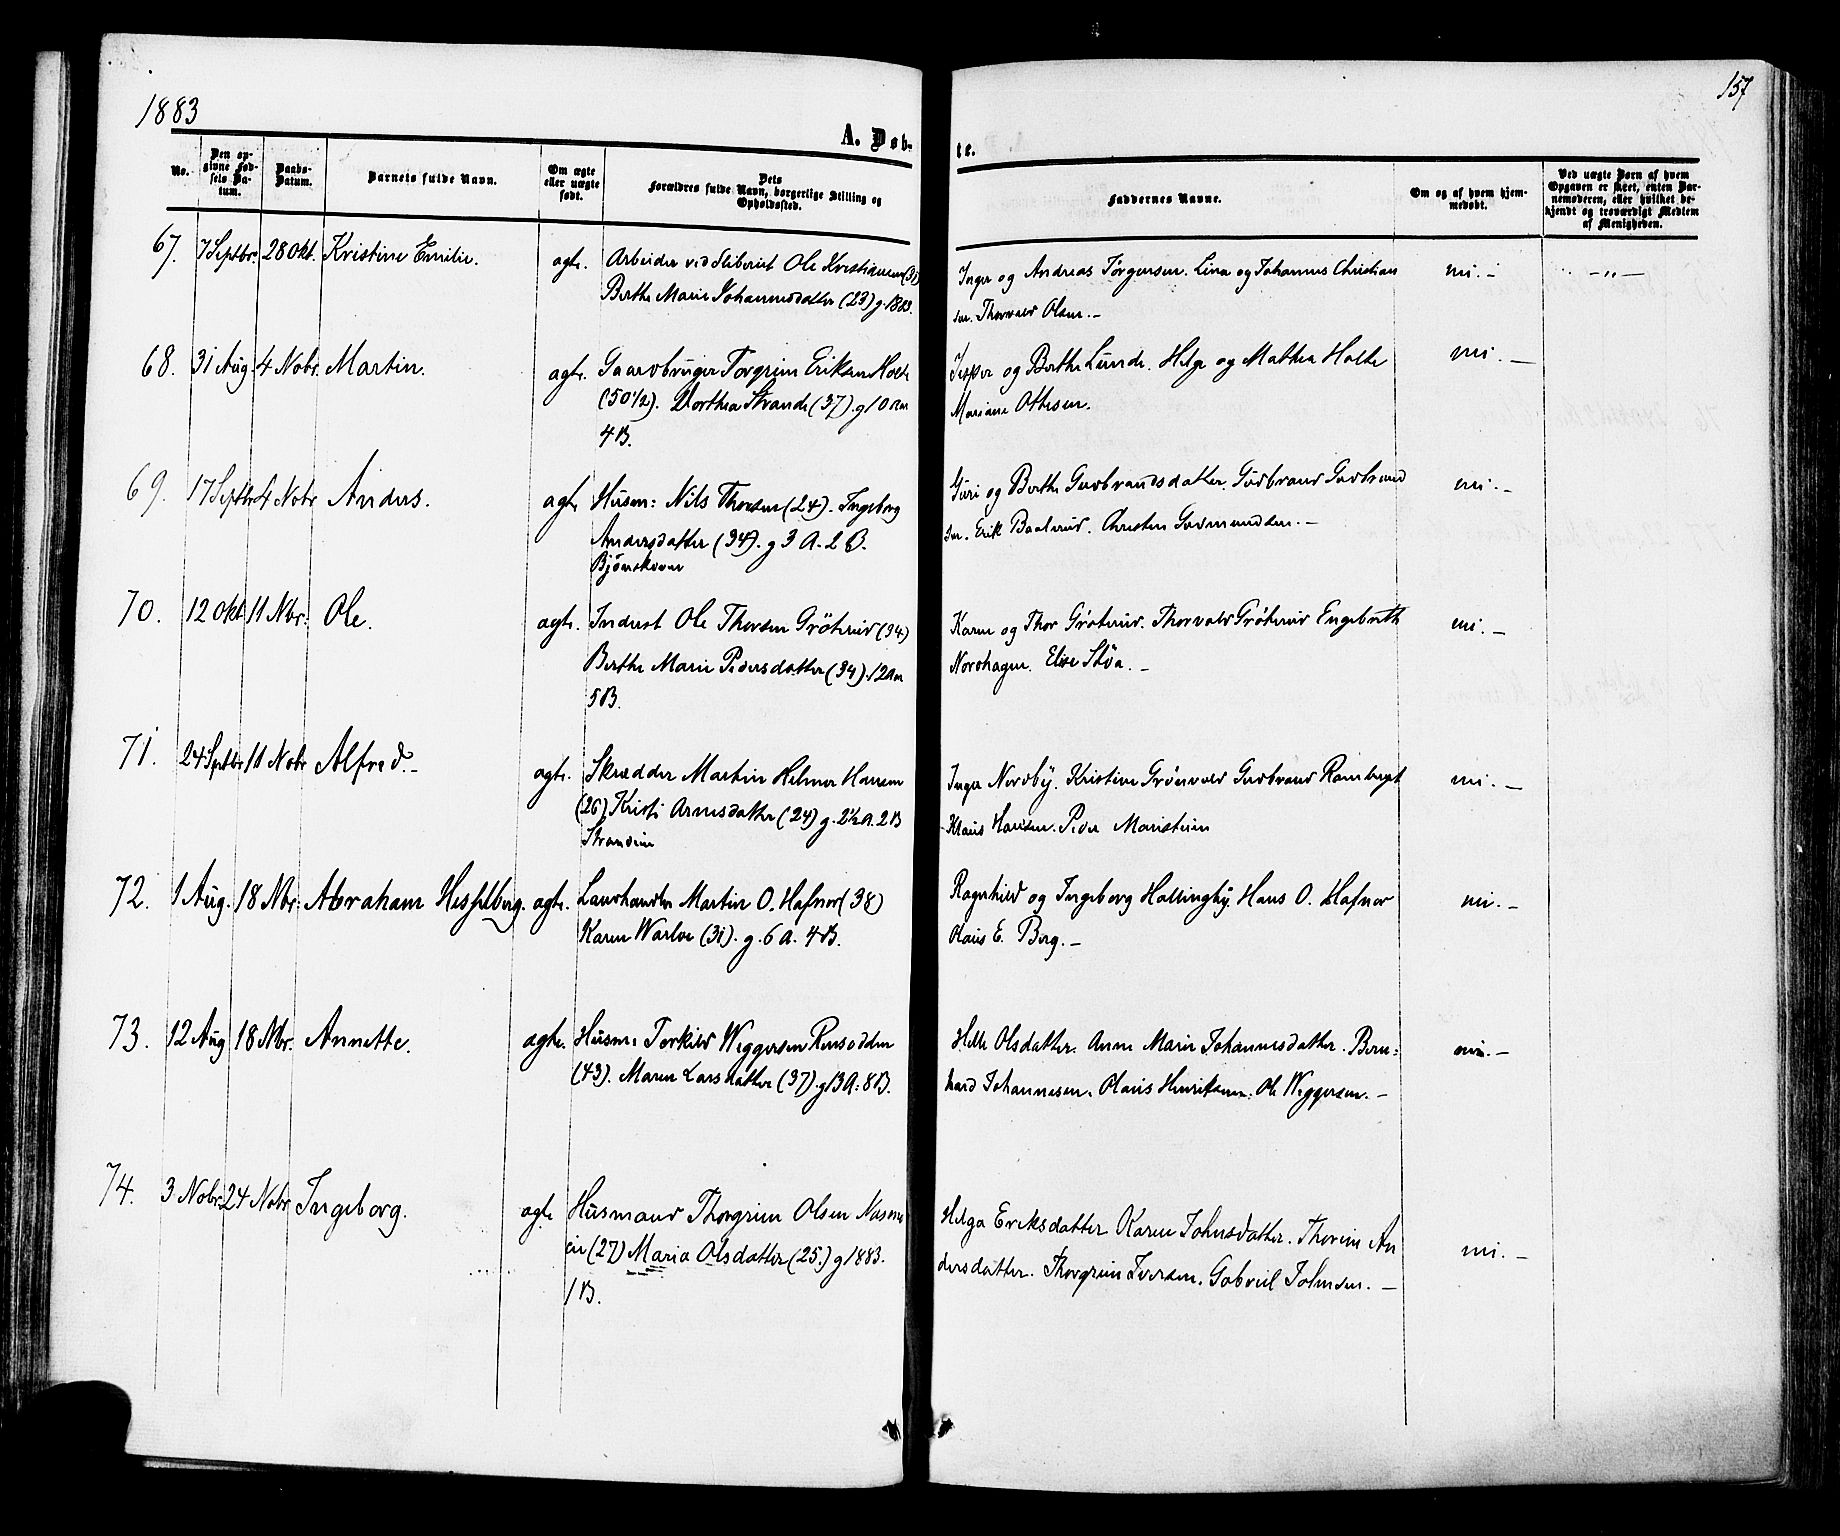 157
1883
A. Døb-
te.
No.
Den op-
givne Fød-
sels Da-
tum.
Daabs-
Datum.
Barnets fulde Navn.
Om ægte
eller uægte
født.
Dets
Forældres fulde Navn, borgerlige Stilling og
Opholdssted.
Faddernes Navne.
Om og af hvem hjem-
medøbt.
Ved uægte Børn af hvem
Opgaven er skeet, enten Bar-
nemoderen, eller hvilket be-
kjendt og troværdigt Medlem
af Menigheden.
67. 7 Septbr. 28 Okt. Kristine Emilie. agte. Arbeider ved Sliberiet Ole Kristiansen (31)
Berthe Marie Johannesdatter (23) g. 1883.
Inger og Andreas Jørgensen. Lina og Johannes Christian
sen. Thorvald Olsen. –
ni. – – „ –
68. 31 Aug. 4 Nobr. Martin. agte. Gaardbruger Torgrim Eriksen Holte
(50 1/2). Dorthea Strande (37). g 10 Aar
4 B.
Jesper og Berthe Lunde. Helge og Mathea Holte
Mariane Ottesen.
ni. –
69. 17 Septbr 4 Nobr Anders. agte Husm: Nils Thorsen (24). Ingeborg
Andersdatter (34). g 3 A. 2 B.
Bjønskoven
Guri og Berthe Gudbrandsdatter. Gudbrand Gudbrand
sen. Erik Baalerud. Christen Gudmundsen. –
ni. –
70. 12 Okt 11 Nbr. Ole. agte. Inderst Ole Thorsen Grøterud (34)
Berthe Marie Pedersdatter (34). 12 Aar
5 B.
Karen og Thor Grøterud. Thorvald Grøterud Engebreth
Nordhagen. Elise Støa. –
ni. –
71. 24 Septbr 11 Nobr Alfred. – agte. Skrædder Martin Helmer Hansen
(26) Kristi Arnesdatter (24) g. 2½ A. 2 B
Strandene
Inger Nordby. Kristine Grønvold Gudbrand Ramberget
Klaus Hansen. Peder Maristuen
ni. –
72. 1 Aug. 18 Nbr. Abraham Hesselberg. agte. Landhandler Martin O. Hafnor (38)
Karen Warloe (31). g. 6 A. 4 B.
Ragnhild og Ingeborg Hallingby. Hans O. Hafnor
Olaus E. Berg. –
ni. –
73. 12 Aug 18 Nbr. Annette. agte. Husm: Torkild Weggersen Rensodden
(43). Maren Larsdatter (37). g 13 A: 8 B.
Helle Olsdatter. Anne Marie Johannesdatter. Bern:
hard Johannesen. Olaus Henriksen. Ole Weggersen. –
ni. –
74. 3 Nobr. 24 Nobr Ingeborg. agte Husmand Thorgrim Olsen Næsm
eie (27) Maria Olsdatter (25.) g 1883.
1 B.
Helga Eriksdatter Karen Johnsdatter. Thorine An
dersdatter. Thorgrim Iversen. Gabriel Johnsen. –
ni. –